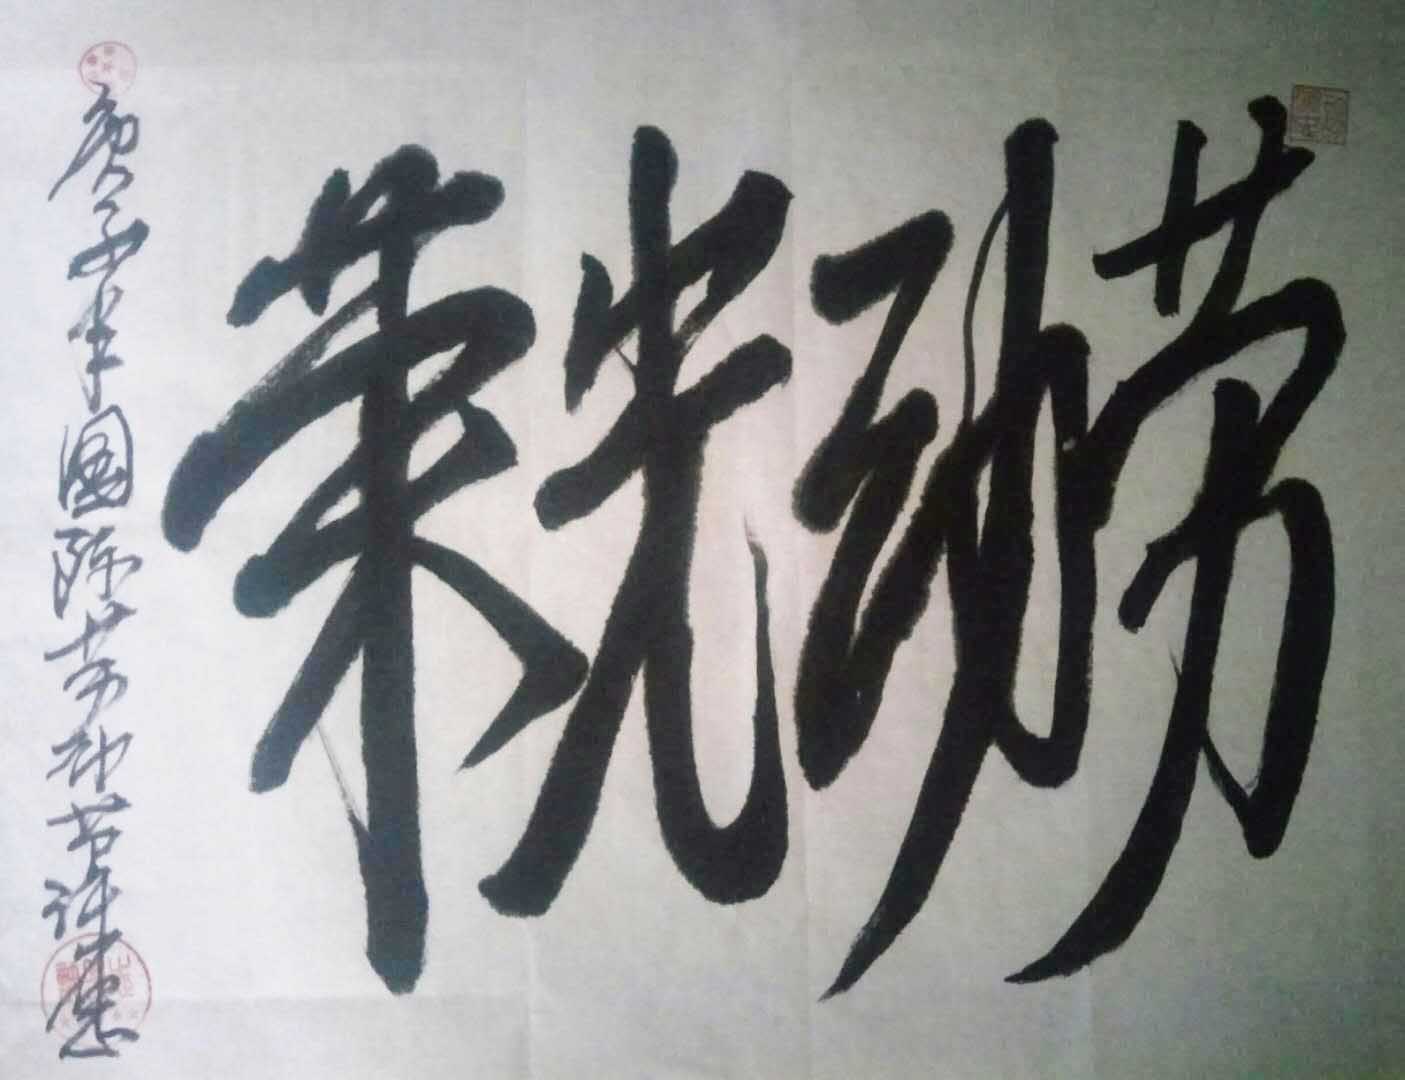 劳动光荣
庚子年國际劳动节许